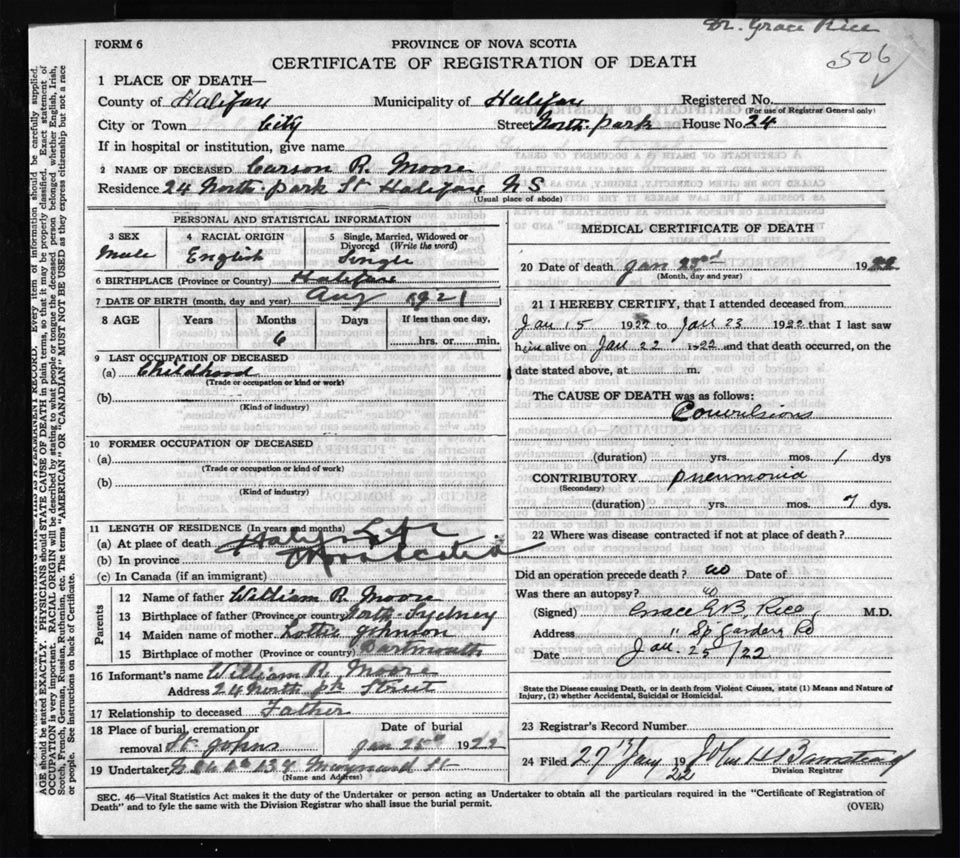 Dr. Grace Rice
506
FORM 6
PROVINCE OF NOVA SCOTIA
CERTIFICATE OF REGISTRATION OF DEATH
1 PLACE OF DEATH—
County of Halifax Municipality of Halifax Registered No.
(For use of Registrar General only)
City or Town City Street North Park House No. 24
If in hospital or institution, give name
2 NAME OF DECEASED Carson R. Moore
Residence 24 North Park St Halifax N S
(Usual place of abode)
PERSONAL AND STATISTICAL INFORMATION
3 SEX 4 RACIAL ORIGIN 5 Single, Married, Widowed or Divorced (Write the word)
Male English Single
6 BIRTHPLACE (Province or Country) Halifax
7 DATE OF BIRTH (month, day and year) Aug 1921
8 AGE Years Months Days If less than one day,
6 hrs. or min.
9 LAST OCCUPATION OF DECEASED
(a) Childhood
(Trade or occupation or kind of work)
(b)
(Kind of industry)
10 FORMER OCCUPATION OF DECEASED
(a)
(Trade or occupation or kind of work)
(b)
(Kind of industry)
11 LENGTH OF RESIDENCE (In years and months)
(a) At place of death Halifax
(b) In province Nova Scotia
(c) In Canada (if an immigrant)
Parents
12 Name of father William R. Moore
13 Birthplace of father (Province or country) North Sydney
14 Maiden name of mother Lottie Johnson
15 Birthplace of mother (Province or country) Dartmouth
16 Informant's name William R. Moore
Address 24 North Pk Street
17 Relationship to deceased Father
18 Place of burial, cremation or removal St. Johns
Date of burial Jan 25th 1922
19 Undertaker 137 Maynard St
(Name and Address)
MEDICAL CERTIFICATE OF DEATH
20 Date of death Jan 23rd 1922
(Month, day and year)
21 I HEREBY CERTIFY, that I attended deceased from
Jan 15 1922 to Jan 23 1922 that I last saw
him alive on Jan 22 1922 and that death occurred, on the
date stated above, at m.
The CAUSE OF DEATH was as follows:
Convulsions
(duration) yrs. mos. 1 dys
CONTRIBUTORY pneumonia
(Secondary)
(duration) yrs. mos. 7 dys
22 Where was disease contracted if not at place of death?
Did an operation precede death? no Date of
Was there an autopsy? no
(Signed) Grace E B Rice, M.D.
Address " Sp Gardens Rd
Date Jan. 25 /22
State the Disease causing Death, or in death from Violent Causes, state (1) Means and Nature of
Injury, (2) whether Accidental, Suicidal or Homicidal.
23 Registrar's Record Number
24 Filed 27th Jany 1922 John
Division Registrar
SEC. 46—Vital Statistics Act makes it the duty of the Undertaker or person acting as Undertaker to obtain all the particulars required in the "Certificate of Registration of
Death" and to fyle the same with the Division Registrar who shall issue the burial permit.
(OVER)
Every item of information should be carefully supplied.
AGE should be stated EXACTLY. PHYSICIANS should STATE CAUSE OF DEATH in plain terms, so that it may be properly classified. Exact statement of
OCCUPATION is very important. RACIAL ORIGIN will be described by stating to what people or tongue the deceased person belonged whether English, Irish,
Scotch, French, German, Russian, Ruthenian, etc. The terms "AMERICAN" OR "CANADIAN" MUST NOT BE USED as they express citizenship but not a race
or people. See instructions on back of Certificate.